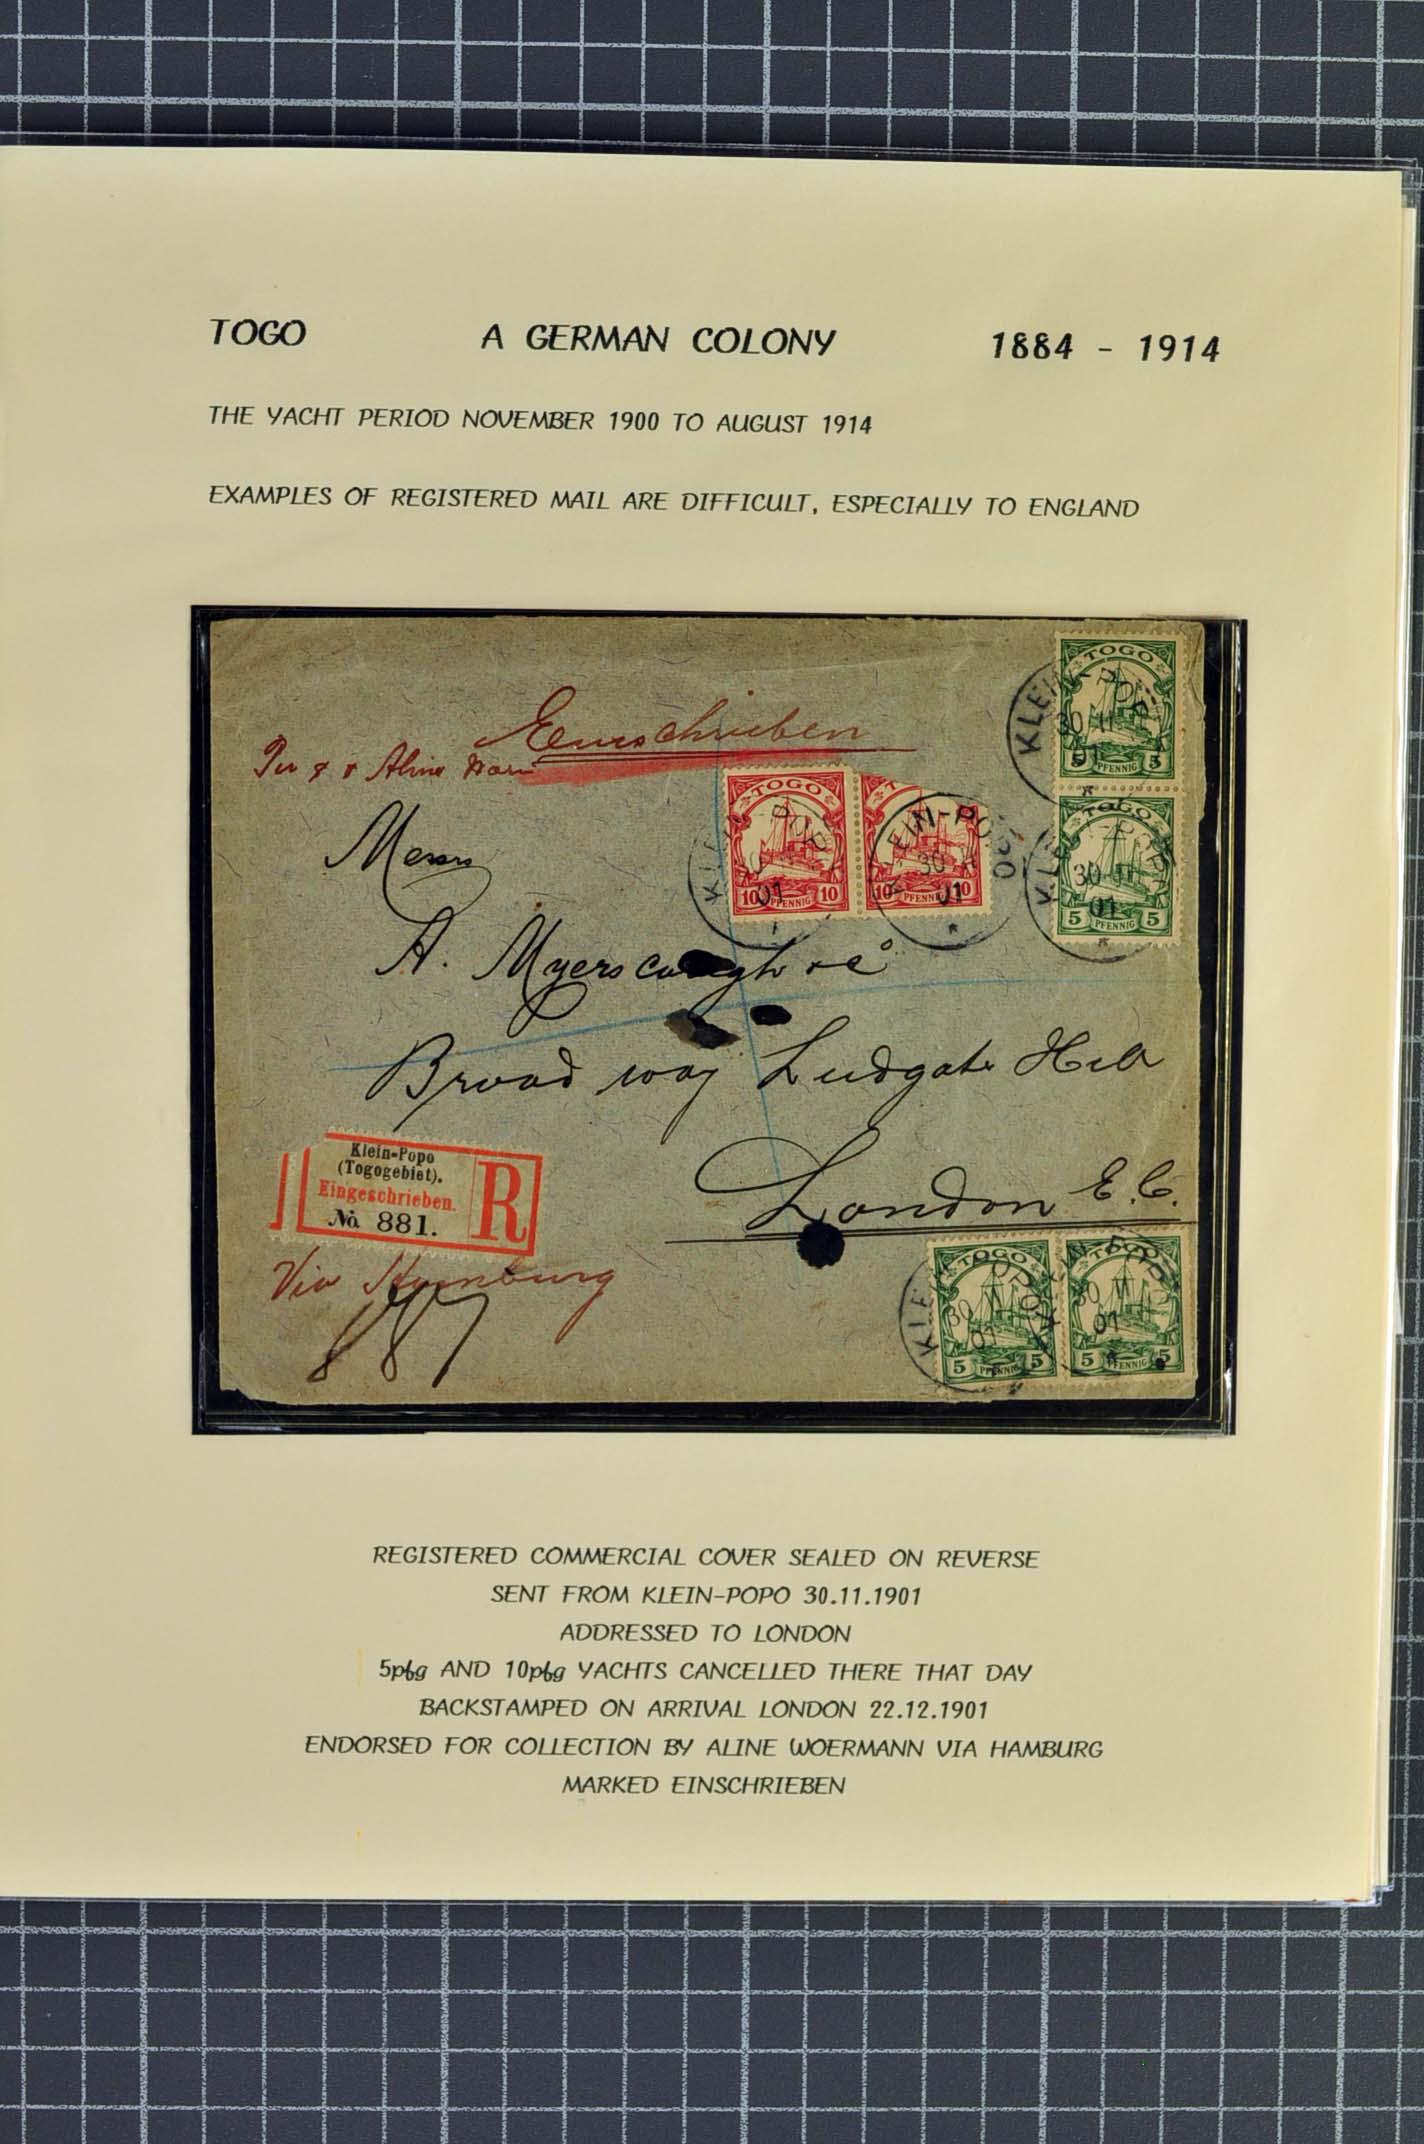 TOGO A GERMAN COLONY 1884 - 1914
THE YACHT PERIOD NOVEMBER 1900 TO AUGUST 1914
EXAMPLES OF REGISTERED MAIL ARE DIFFICULT, ESPECIALLY TO ENGLAND
Einschrieben
Per Aline
Messrs
A. Myerscough & Co
Broad way Ludgate Hill
London E.C.
TOGO
KLEIN-POPO
30 11
01
5 PFENNIG 5
TOGO
KLEIN-POPO
30 11
01
5 PFENNIG 5
TOGO
KLEIN-POPO
01
10 PFENNIG 10
KLEIN-POPO
30
01
10 PFENNIG 10
Klein-Popo
(Togogebiet).
Eingeschrieben.
No. 881.
R
Via Hamburg
887
TOGO
KLEIN-POPO
30 11
01
5 PFENNIG 5
TOGO
KLEIN-POPO
30 11
01
5 PFENNIG 5
REGISTERED COMMERCIAL COVER SEALED ON REVERSE
SENT FROM KLEIN-POPO 30.11.1901
ADDRESSED TO LONDON
5pfg AND 10pfg YACHTS CANCELLED THERE THAT DAY
BACKSTAMPED ON ARRIVAL LONDON 22.12.1901
ENDORSED FOR COLLECTION BY ALINE WOERMANN VIA HAMBURG
MARKED EINSCHRIEBEN